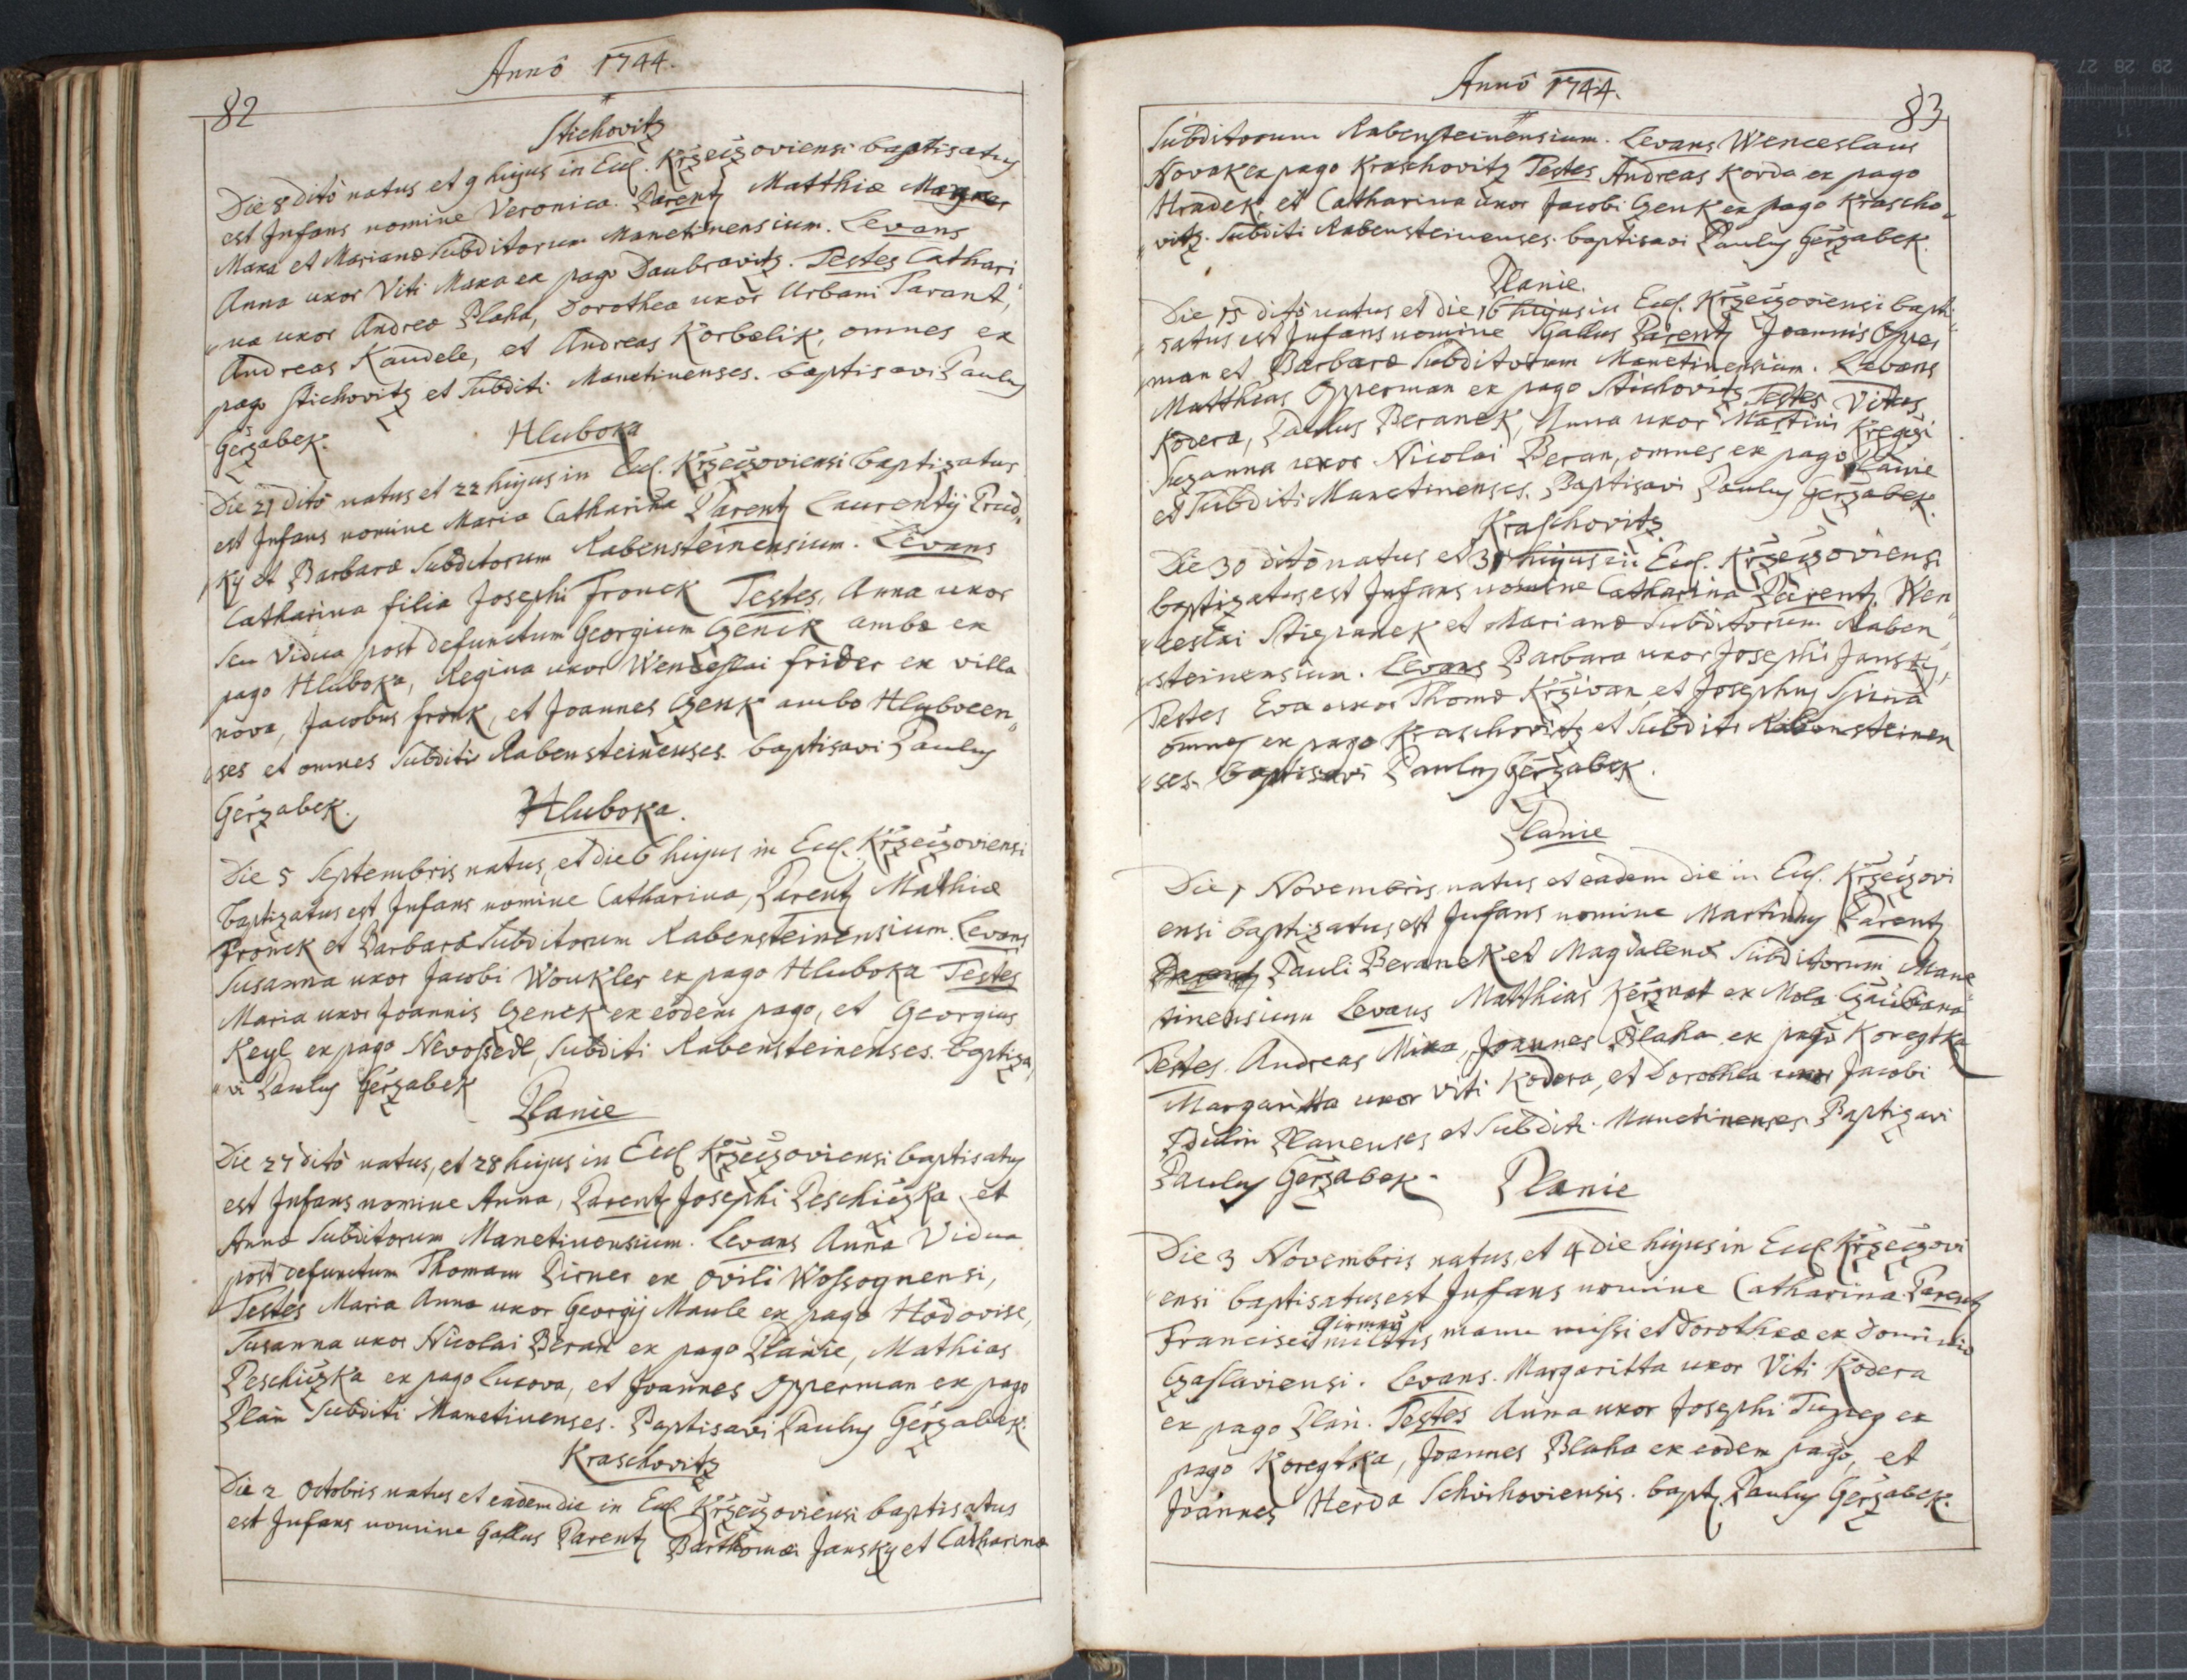 Annô 1744.
82
Stichovitz
Die 8 ditô natus et 9 hujus in Eccl. Kržeczoviensi baptisatus
est Infans nomine Veronica. Parent Matthiæ
Maxa et Marianæ Subditorum Manetinensium. Levans
Anna uxor Viti Maxa ex pago Daubravitz. Testes Cathari„
„na uxor Andreæ Blaha, Dorothea uxor Urbani Tarant,
Andreas Kandele, et Andreas Korbelik, omnes ex
pago Stichovitz et Subditi Manetinenses. baptisavi Paulus
Geržabek.
Hluboka
Die 21 ditô natus et 22 hujus in Eccl. Kržeczoviensi baptizatus
est Infans nomine Maria Catharina Parent Laurentij Prud„
„ky et Barbaræ Subditorum Rabensteinensium. Levans
Catharina filia Josephi Fronek Testes, Anna uxor
seu Vidua post defunctum Georgium Czenik ambæ ex
pago Hluboka, Regina uxor Wenceslai frider ex villa
nova, Jacobus fronk, et Joannes Czenk ambo Hlubocen„
„ses et omnes Subditi Rabensteinenses. baptisavi Paulus
Geržabek.
Hluboka.
Die 5 Septembris natus, et die 6 hujus in Eccl. Kržeczoviensi
baptizatus est Infans nomine Catharina, Parent Mathiæ
Fronek et Barbaræ Subditorum Rabensteinensium. Levans
Susanna uxor Jacobi Woukler ex pago Hluboka Testes
Maria uxor Joannis Czenek ex eodem pago, et Georgius
Keyl ex pago Nevossedl, Subditi Rabensteinenses. baptiza„
„vi Paulus Geržabek
Planie
Die 27 ditô natus, et 28 hujus in Eccl Kržeczoviensi baptisatus
est Infans nomine Anna, Parent Josephi Peschiczka et
Annæ Subditorum Manetinensium. Levans Anna Vidua
post defunctum Thomam Pirner ex ovili Wossognensi,
Testes Maria Anna uxor Georgij Maule ex pago Hodovise,
Susanna uxor Nicolai Beran ex pago Planie, Mathias
Peschiczka ex pago Lukova, et Joannes Opperman ex pago
Plan Subditi Manetinenses. Baptisavi Paulus Geržabek.
Kraschovitz
Die 2 Octobris natus et eadem die in Eccl Kržeczoviensi baptisatus
est Infans nomine Gallus Parent Barthomæi Jansky et Catharinæ
Annô 1744.
83
Subditorum Rabensteinensium. Levans Wenceslaus
Novak ex pago Kraschovitz Testes Andreas Korda ex pago
Hradek, et Catharina uxor Jacobi Czenk ex pago Krascho„
„vitz. Subditi Rabensteinenses. baptisavi Paulus Geržabek.
Planie.
Die 15 ditô natus et die 16 hujus in Eccl. Kržeczoviensi bapti„
„satus est Infans nomine Gallus Parent Joannis Opper
man et Barbaræ Subditorum Manetinensium. Levans
Matthias Opperman ex pago Stichovitz Testes Vitus
Kodera, Paulus Beranek, Anna uxor Martini Kregczi
Suzanna uxor Nicolai Beran, omnes ex pago Planie
et Subditi Manetinenses. Baptisavi Paulus Geržabek.
Kraschovitz
Die 30 ditô natus et 31 hujus in Eccl. Kržeczoviensi
baptizatus est Infans nomine Catharina Parent. Wen„
„ceslai Stiepanek et Marianæ Subditorum Raben„
„steinensium. Levans Barbara uxor Josephi Jansky,
Testes Eva uxor Thomæ Krživan, et Josephus Spina
omnes ex pago Kraschovitz et Subditi Rabensteinen
„ses. baptisavi Paulus Geržabek.
Planie
Die 1 Novembris natus et eadem die in Eccl. Kržeczovi
ensi baptizatus est Infans nomine Martinus Parent
Pauli Beranek et Magdalenæ Subditorum Mane„
tinensium Levans Matthias Keržnat ex Mola
Testes. Andreas Mixa, Joannes Blaha ex pago Koregtka
Margaritta uxor Viti Kodera, et Dorothea uxor Jacobi
Planenses et Subditi Manetinenses Baptizavi
Paulus Geržabek.
Planie
Die 3 Novembris natus, et 4 die hujus in Eccl Kržeczovi
ensi baptisatus est Infans nomine Catharina Parent
Francisci militis manu missi et Dorotheæ ex Dominio
Czaslaviensi. Levans. Margaritta uxor Viti Kodera
ex pago Plan. Testes Anna uxor Josephi Tupeg ex
pago Koregtka, Joannes Blaha ex eodem pago, et
Joannes Herda Schichoviensis. bapt Paulus Geržabek.